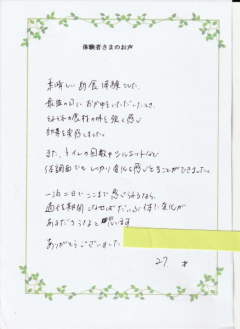 体験者さまのお声
素晴しい断食体験でした。
最後の日におかゆをいただいたとき、
それぞれの食材の味を強く感じ
効果を実感しました。
また、トイレの回数やシルエットなど
体調面でもしっかり変化を感じとることができました。
一泊二日でここまで感じれるなら、
適性期間こなせばだいぶ体に変化が
あるだろうなと思います
ありがとうございました
27 才